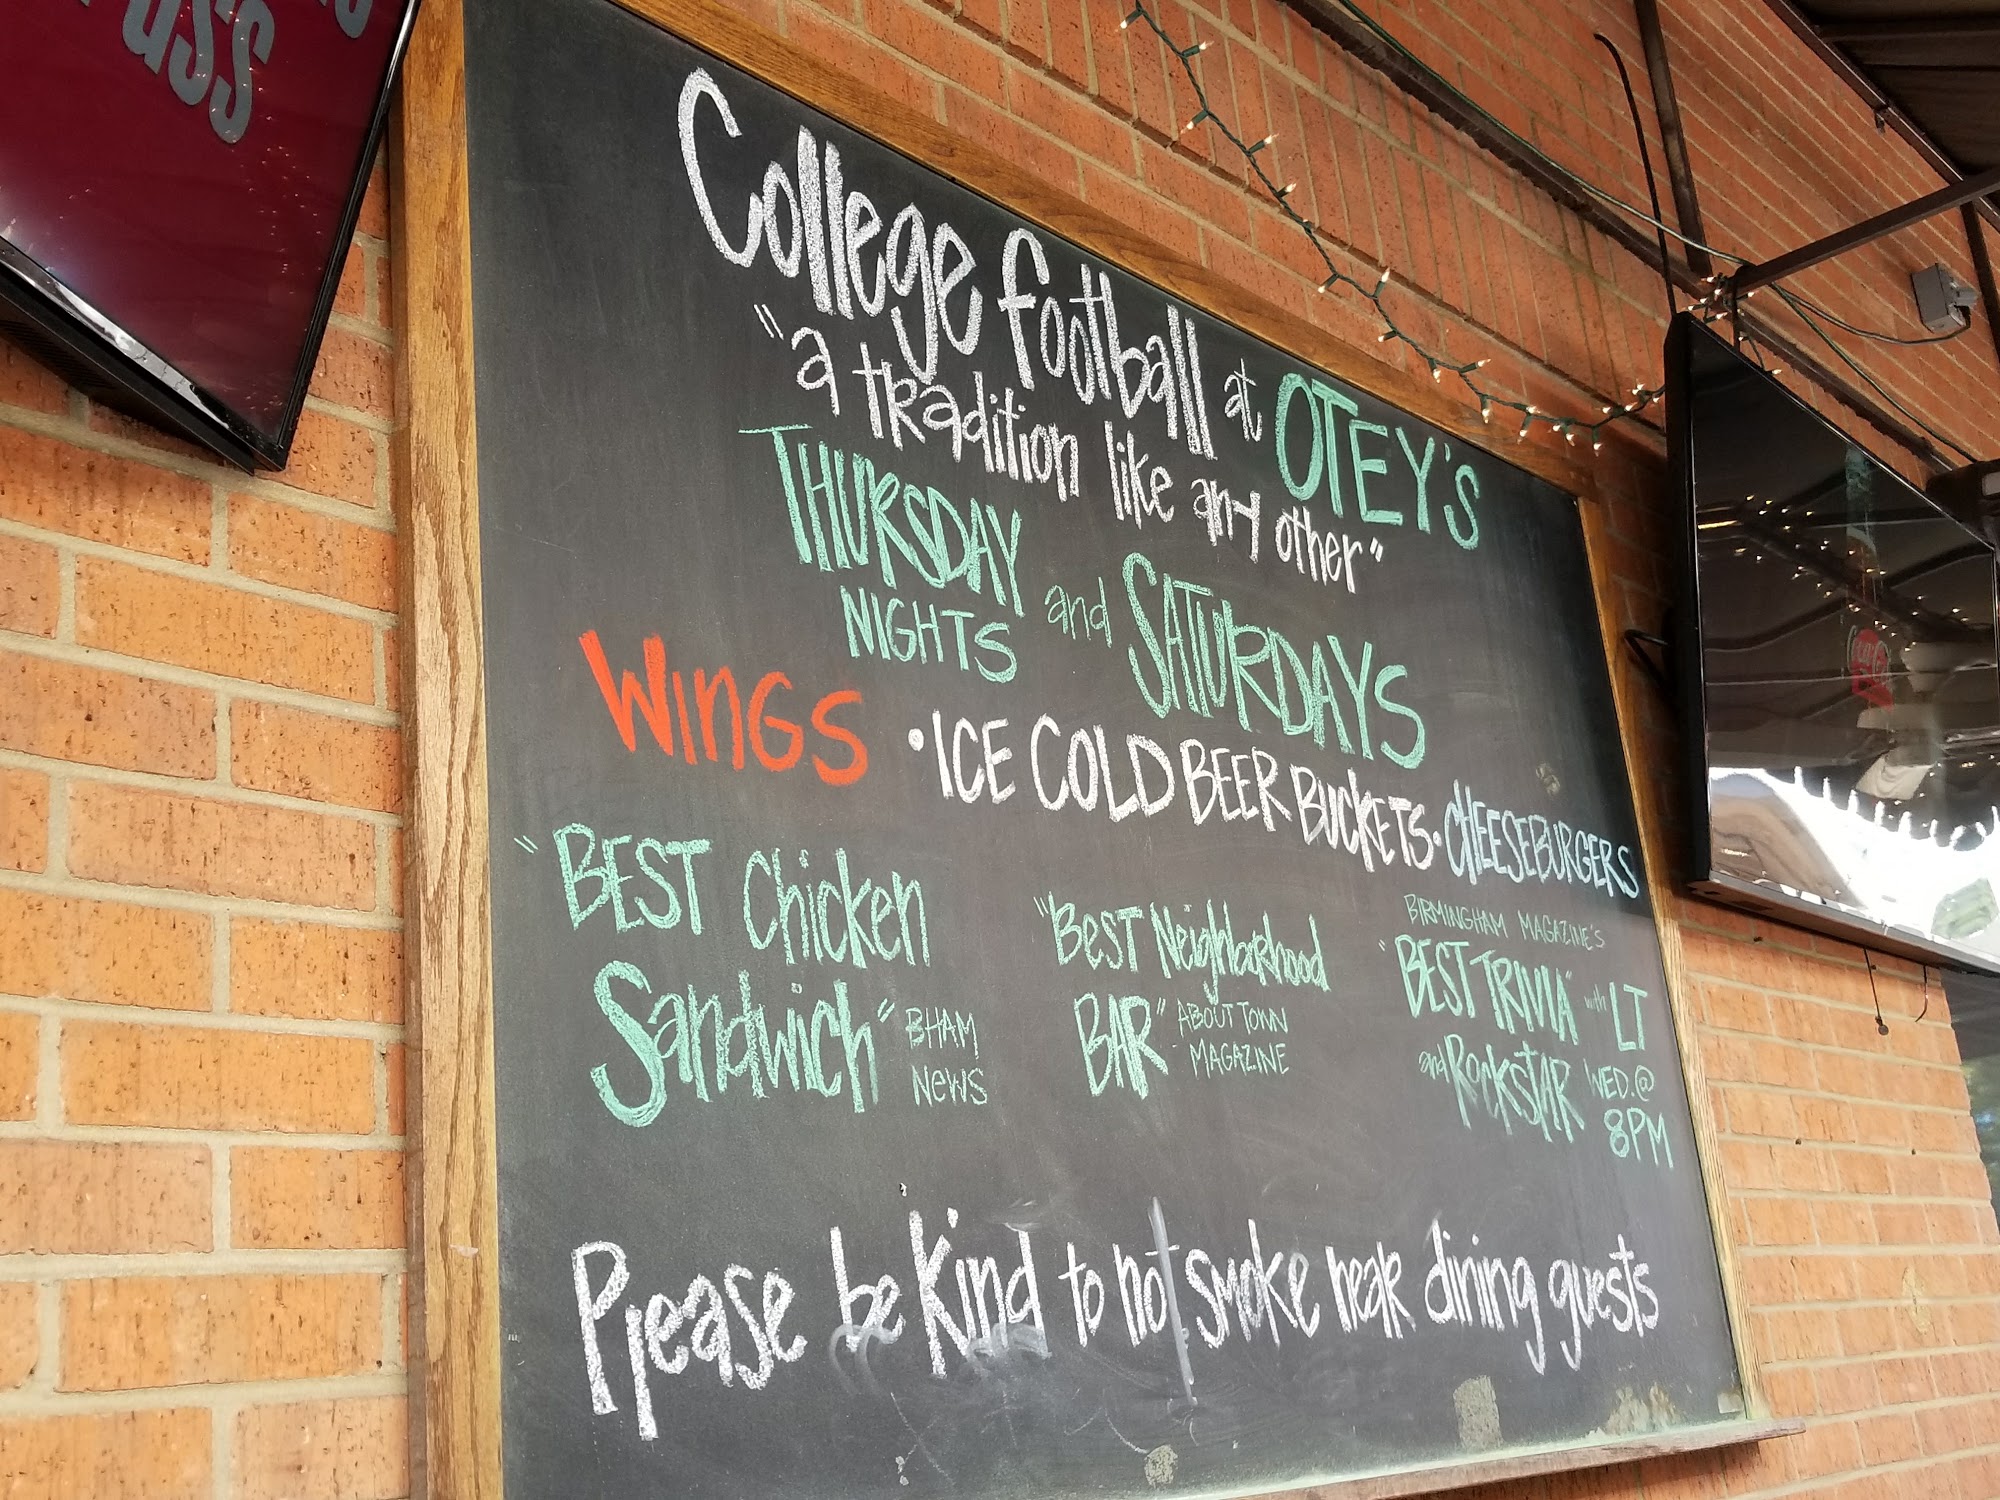 College football at OTEY'S
"a tradition like any other"
THURSDAY NIGHTS and SATURDAYS
WINGS • ICE COLD BEER BUCKETS • CHEESEBURGERS
"BEST Chicken
Sandwich" BHAM NEWS
"BEST Neighborhood
BAR" ABOUT TOWN MAGAZINE
BIRMINGHAM MAGAZINE'S
"BEST TRIVIA" with LT
and ROCKSTAR WED.@ 8PM
Please be kind to not smoke near dining guests